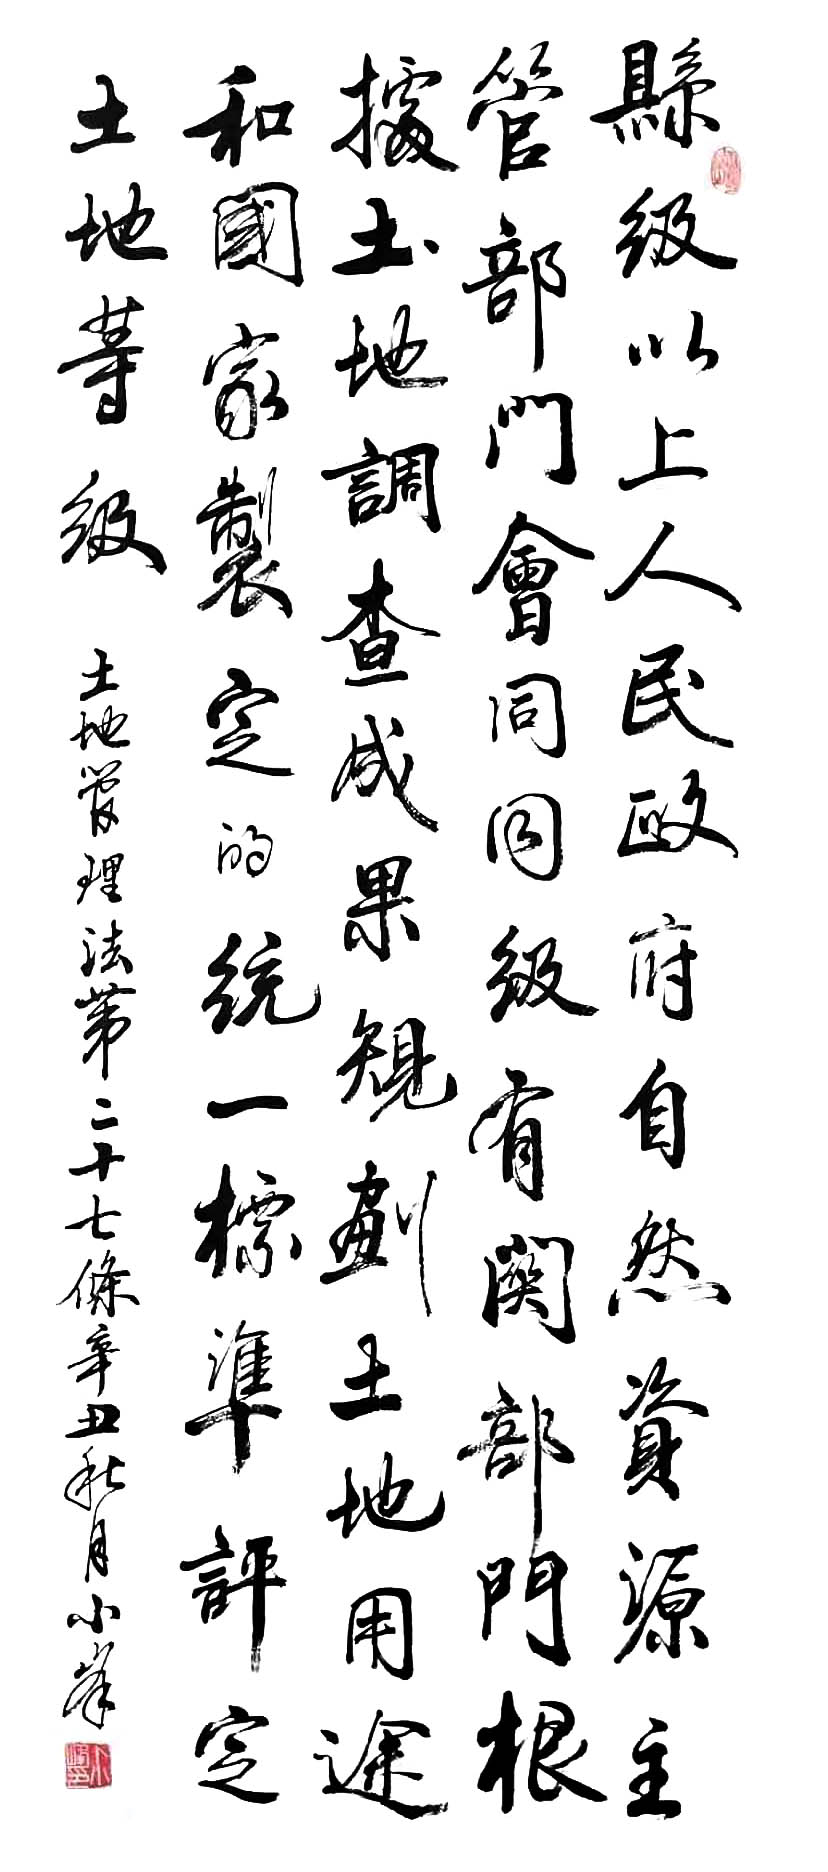 縣級以上人民政府自然資源主
管部門會同同級有關部門根
據土地調查成果規劃土地用途
和國家製定的統一標準評定
土地等級
土地管理法第二十七條辛丑秋月小峯